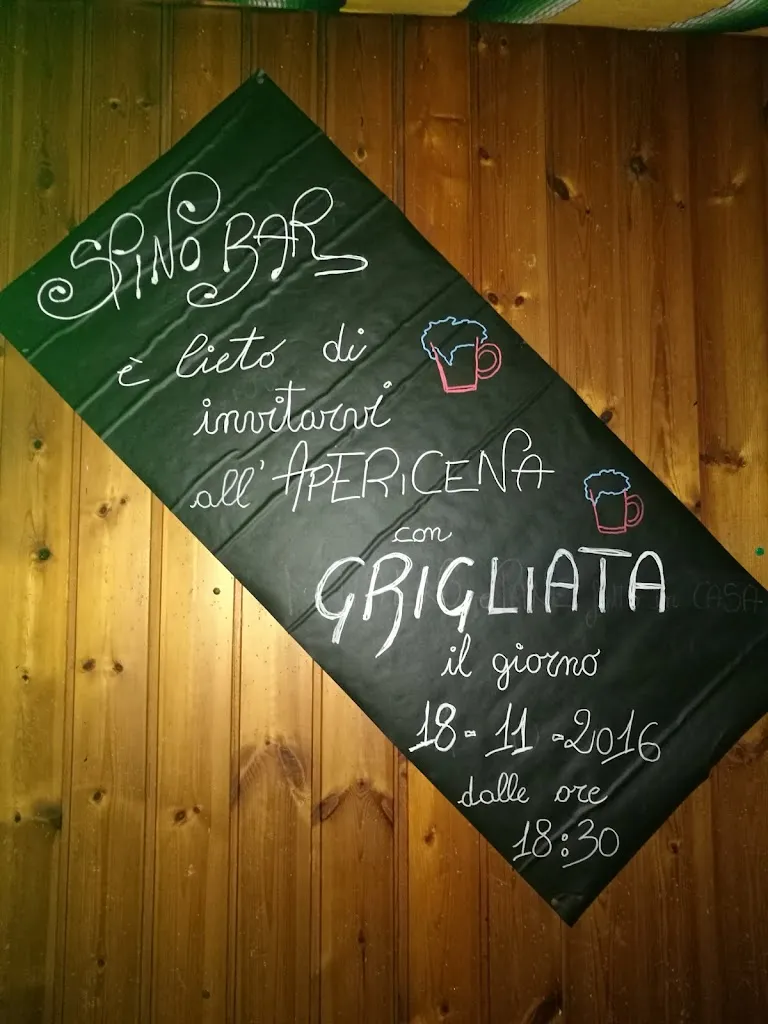 SPINO BAR
è lieto di
invitarvi
all'APERICENA
con
GRIGLIATA
il giorno
18-11-2016
dalle ore
18:30
CASA